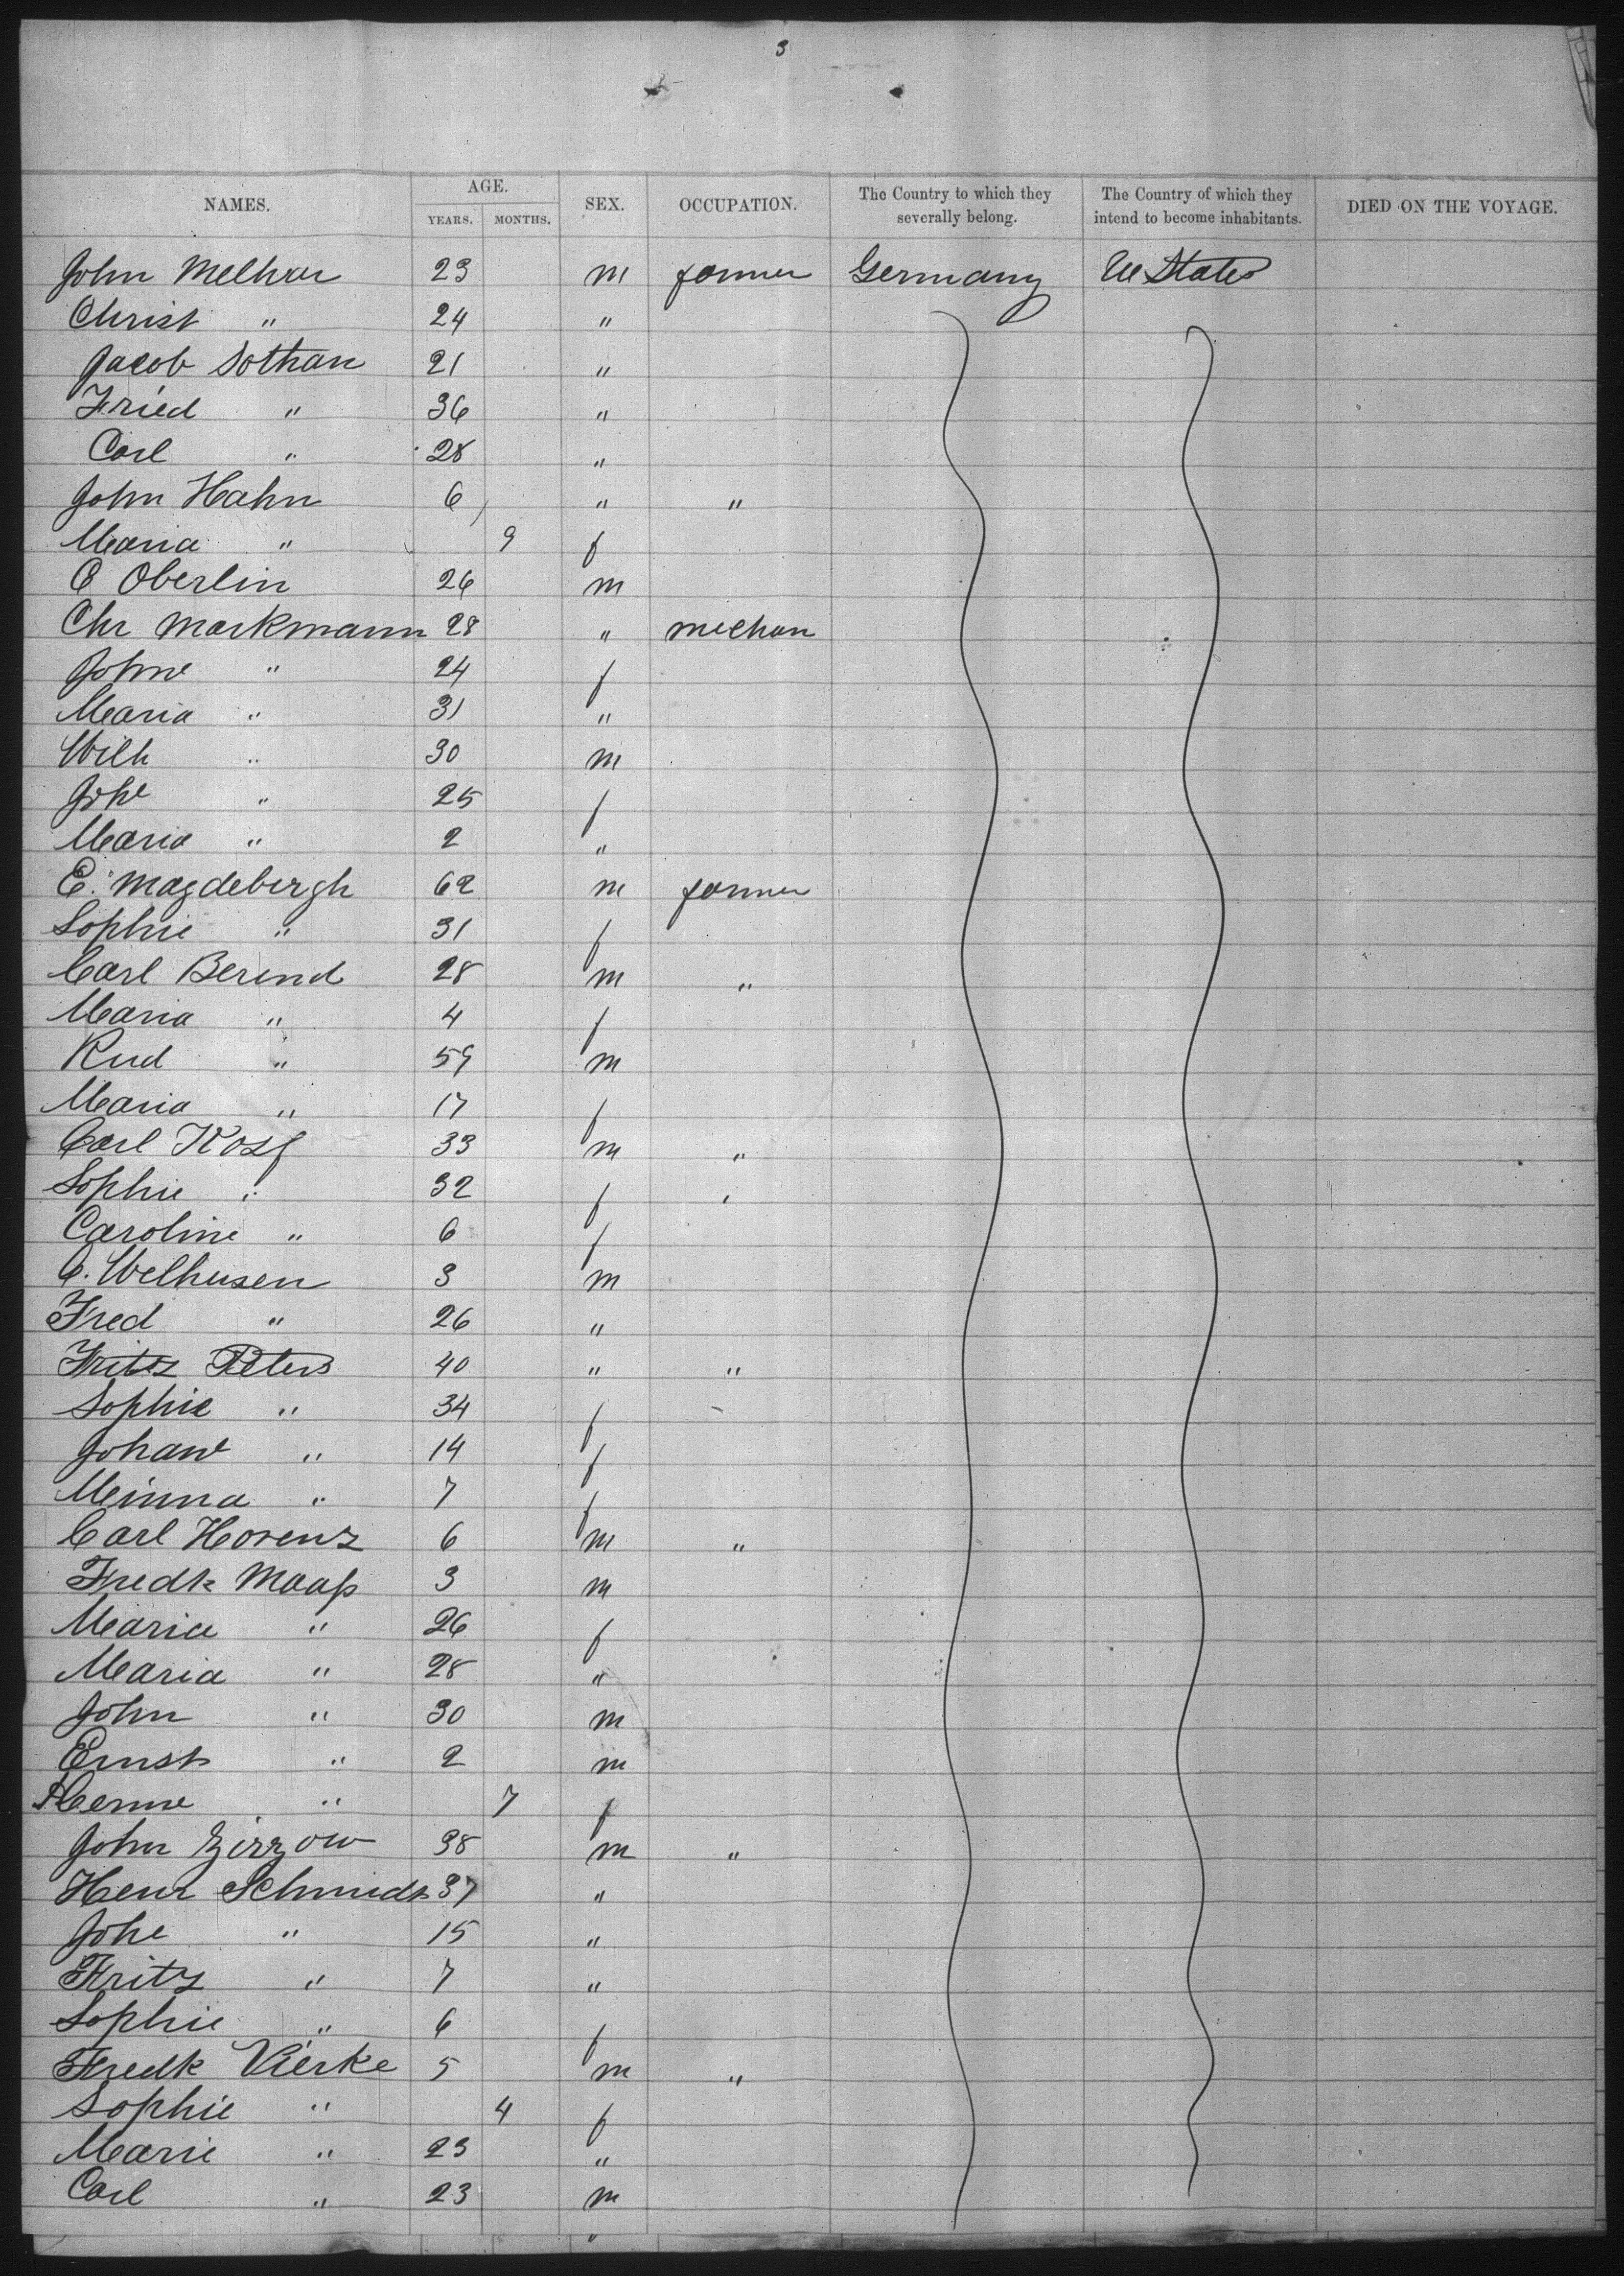 3
NAMES. AGE. YEARS. MONTHS. SEX. OCCUPATION. The Country to which they severally belong. The Country of which they intend to become inhabitants. DIED ON THE VOYAGE.
John Melhver 23 m farmer Germany U States
Christ " 24 "
Jacob Sothan 21 "
Fried " 36 "
Carl " 28 "
John Hahn 6 " "
Maria " 9 f
C Oberlin 26 m
Chr Markmann 28 " mechan
Johne " 24 f
Maria " 31 "
Wilh " 30 m
Johe " 25 f
Maria " 2 "
E. Magdebergh 62 m farmer
Sophie " 31 f
Carl Berend 28 m "
Maria " 4 f
Rud " 59 m
Maria " 17 f
Carl Koss 33 m "
Sophie " 32 f "
Caroline " 6 f
C. Welhusen 3 m
Fred " 26 "
Fritz Peters 40 " "
Sophie " 34 f
Johane " 14 f
Minna " 7 f
Carl Horenz 6 m "
Fredk Maaß 3 m
Maria " 26 f
Maria " 28 "
John " 30 m
Ernst " 2 m
Henne " 7 f
John Zizzow 38 m "
Henr Schmidt 37 "
Johe " 15 "
Fritz " 7 "
Sophie " 6 f
Fredk Vierke 5 m "
Sophie " 4 f
Marie " 23 "
Carl " 23 m